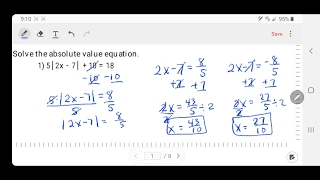 9:10
81%
Solve the absolute value equation.
1) 5|2x - 7| + 10 = 18
-10 -10
5·|2x-7| = 8
5 5
|2x-7| = 8/5
2x-7 = 8/5
+7 +7
2x = 43/5 ÷ 2
2
x = 43/10
2x-7 = -8/5
+7 +7
2x = 27/5 ÷ 2
2
x = 27/10
1 / 8